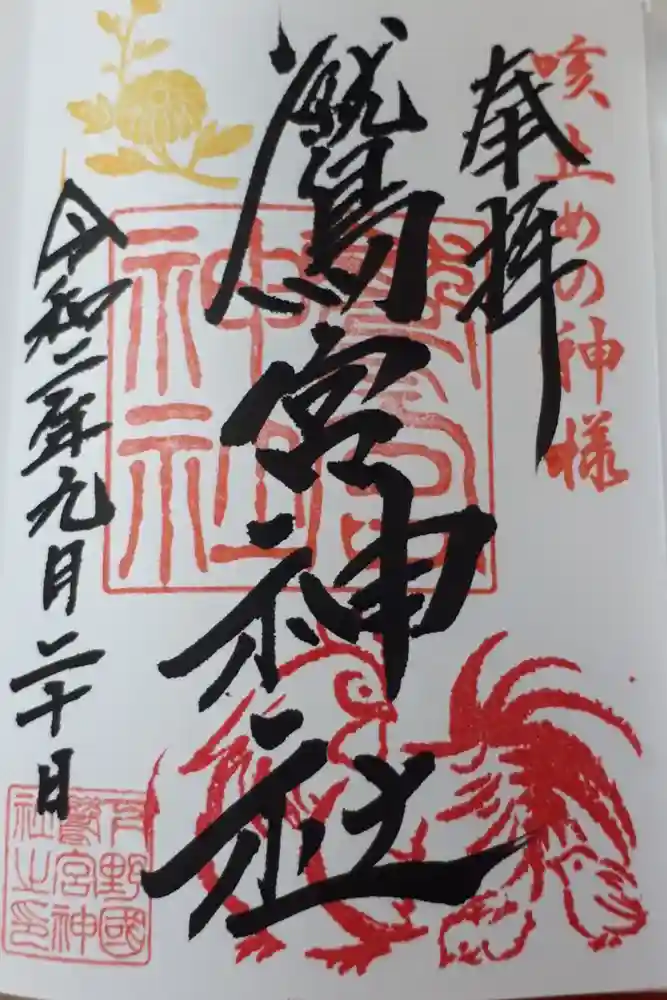 咳止めの神様
奉拝
鷲宮神社
令和二年九月二十日
鷲宮
神社
下野國
鷲宮神
社之印